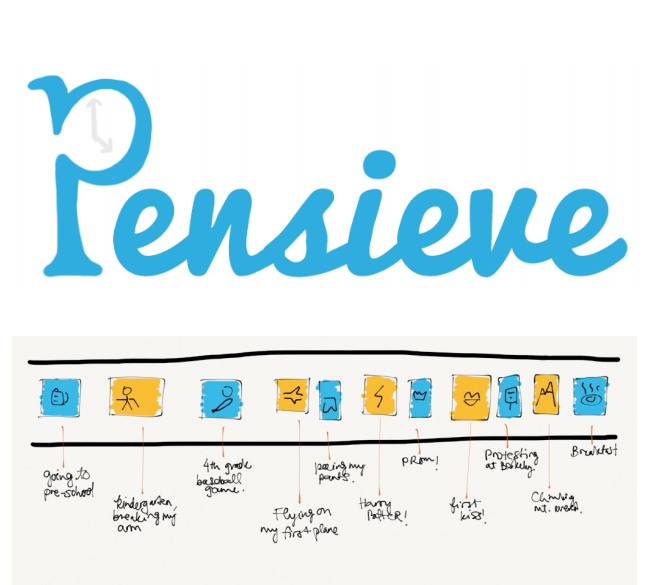 Pensieve
going to
pre-school
kindergarten,
breaking my
arm
4th grade
baseball
game.
Flying on
my first plane
peeing my
pants.
Harry
Potter!
prom!
first
kiss!
Protesting
at
Climbing
mt.
Breakfast